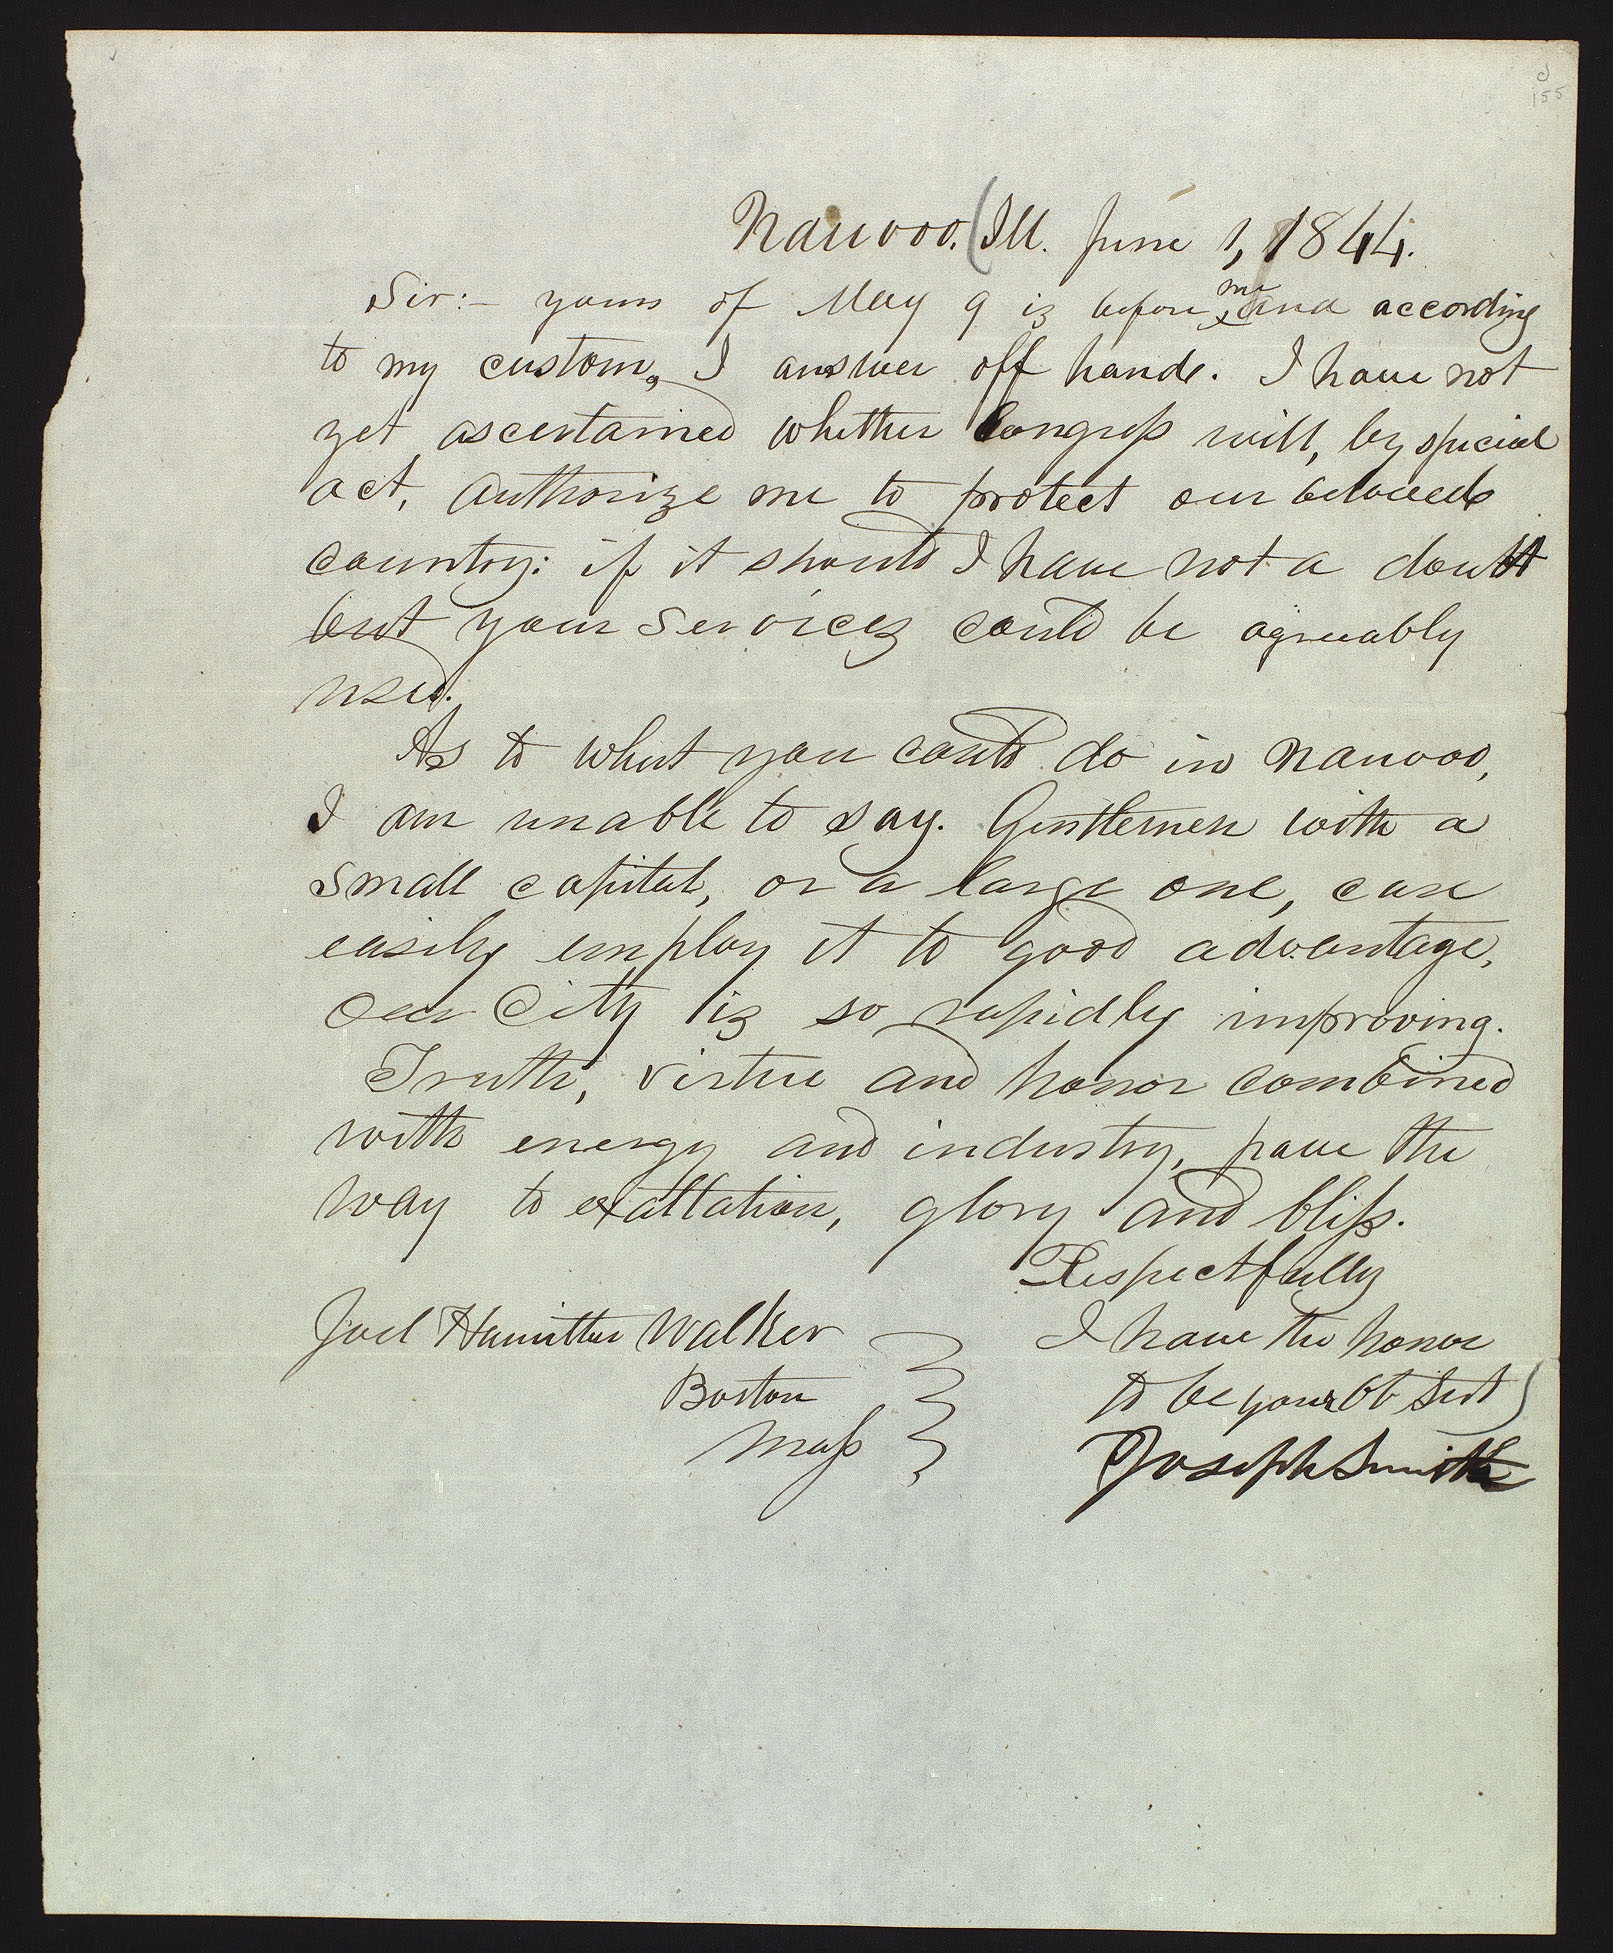 155
Nauvoo. Ill. June 1, 1844.
Sir:- yours of May 9 is before me and according
to my custom, I answer off hand. I have not
yet ascertained whether Congress will, by special
act, authorize me to protect our beloved
country: if it should I have not a doubt
but your services could be agreeably
used.
As to what you could do in Nauvoo,
I am unable to say. Gentlemen with a
small capital, or a large one, can
easily employ it to good advantage,
Our City is so rapidly improving.
Truth, virtue and honor combined
with energy and industry, pave the
way to exaltation, glory and bliss.
Respectfully
I have the honor
to be your ob Sert
Joseph Smith
Joel Hamilton Walker
Boston
Mass